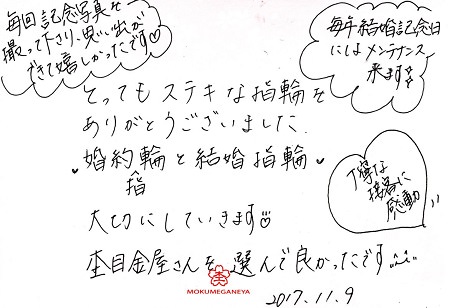 毎回記念写真を
撮って下さり、思い出が
できて嬉しかったです♡
毎年結婚記念日
にはメンテナンス
来ます
とってもステキな指輪を
ありがとうございました.
婚約指輪と結婚指輪
丁寧な
接客に
感動
大切にしていきます♡
杢目金屋さんを選んで良かったです
MOKUMEGANEYA
2017.11.9